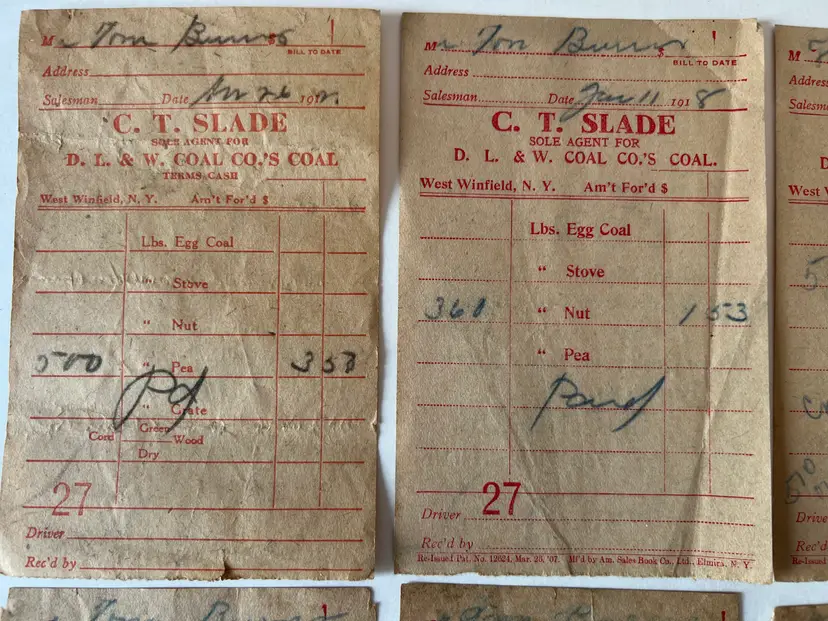 Mr Tom Burns $
BILL TO DATE
Address
Salesman Date 26 191
C. T. SLADE
SOLE AGENT FOR
D. L. & W. COAL CO.'S COAL
TERMS CASH
West Winfield, N. Y. Am't For'd $
Lbs. Egg Coal
" Stove
" Nut
500 " Pea 3 53
Pd
" Grate
Cord Green
Wood
Dry
27
Driver
Rec'd by
Mr Tom Burns $
BILL TO DATE
Address
Salesman Date Jan 11 1918
C. T. SLADE
SOLE AGENT FOR
D. L. & W. COAL CO.'S COAL.
West Winfield, N. Y. Am't For'd $
Lbs. Egg Coal
" Stove
360 " Nut 1 53
" Pea
Paid
27
Driver
Rec'd by
Re-Issued Pat. No. 12624, Mar. 26, '07. Mf'd by Am. Sales Book Co., Ltd., Elmira, N. Y.
M
Address
Salesm
D.
West W
5
50
Driver
Rec'd
Re-Issued
Tom Burns